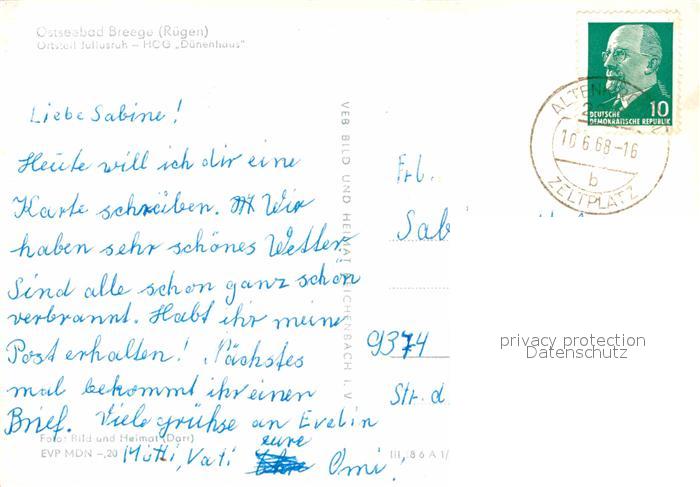 Ostseebad Breege (Rügen)
Ortsteil Juliusruh – HOG „Dünenhaus"
Liebe Sabine!
Heute will ich dir eine
Karte schreiben. Wir
haben sehr schönes Wetter.
Sind alle schon ganz schön
verbrannt. Habt ihr meine
Post erhalten! Nächstes
mal bekommt ihr einen
Brief. Viele grühse an Evelin
eure
Mutti, Vati Omi!
Foto: Bild und Heimat (Darr)
EVP MDN -,20
VEB BILD UND HEIMAT REICHENBACH I. V.
10
DEUTSCHE
DEMOKRATISCHE REPUBLIK
10.6.68-16
b
ZELTPLATZ
Frl.
Sab
9374
Str. d
privacy protection
Datenschutz